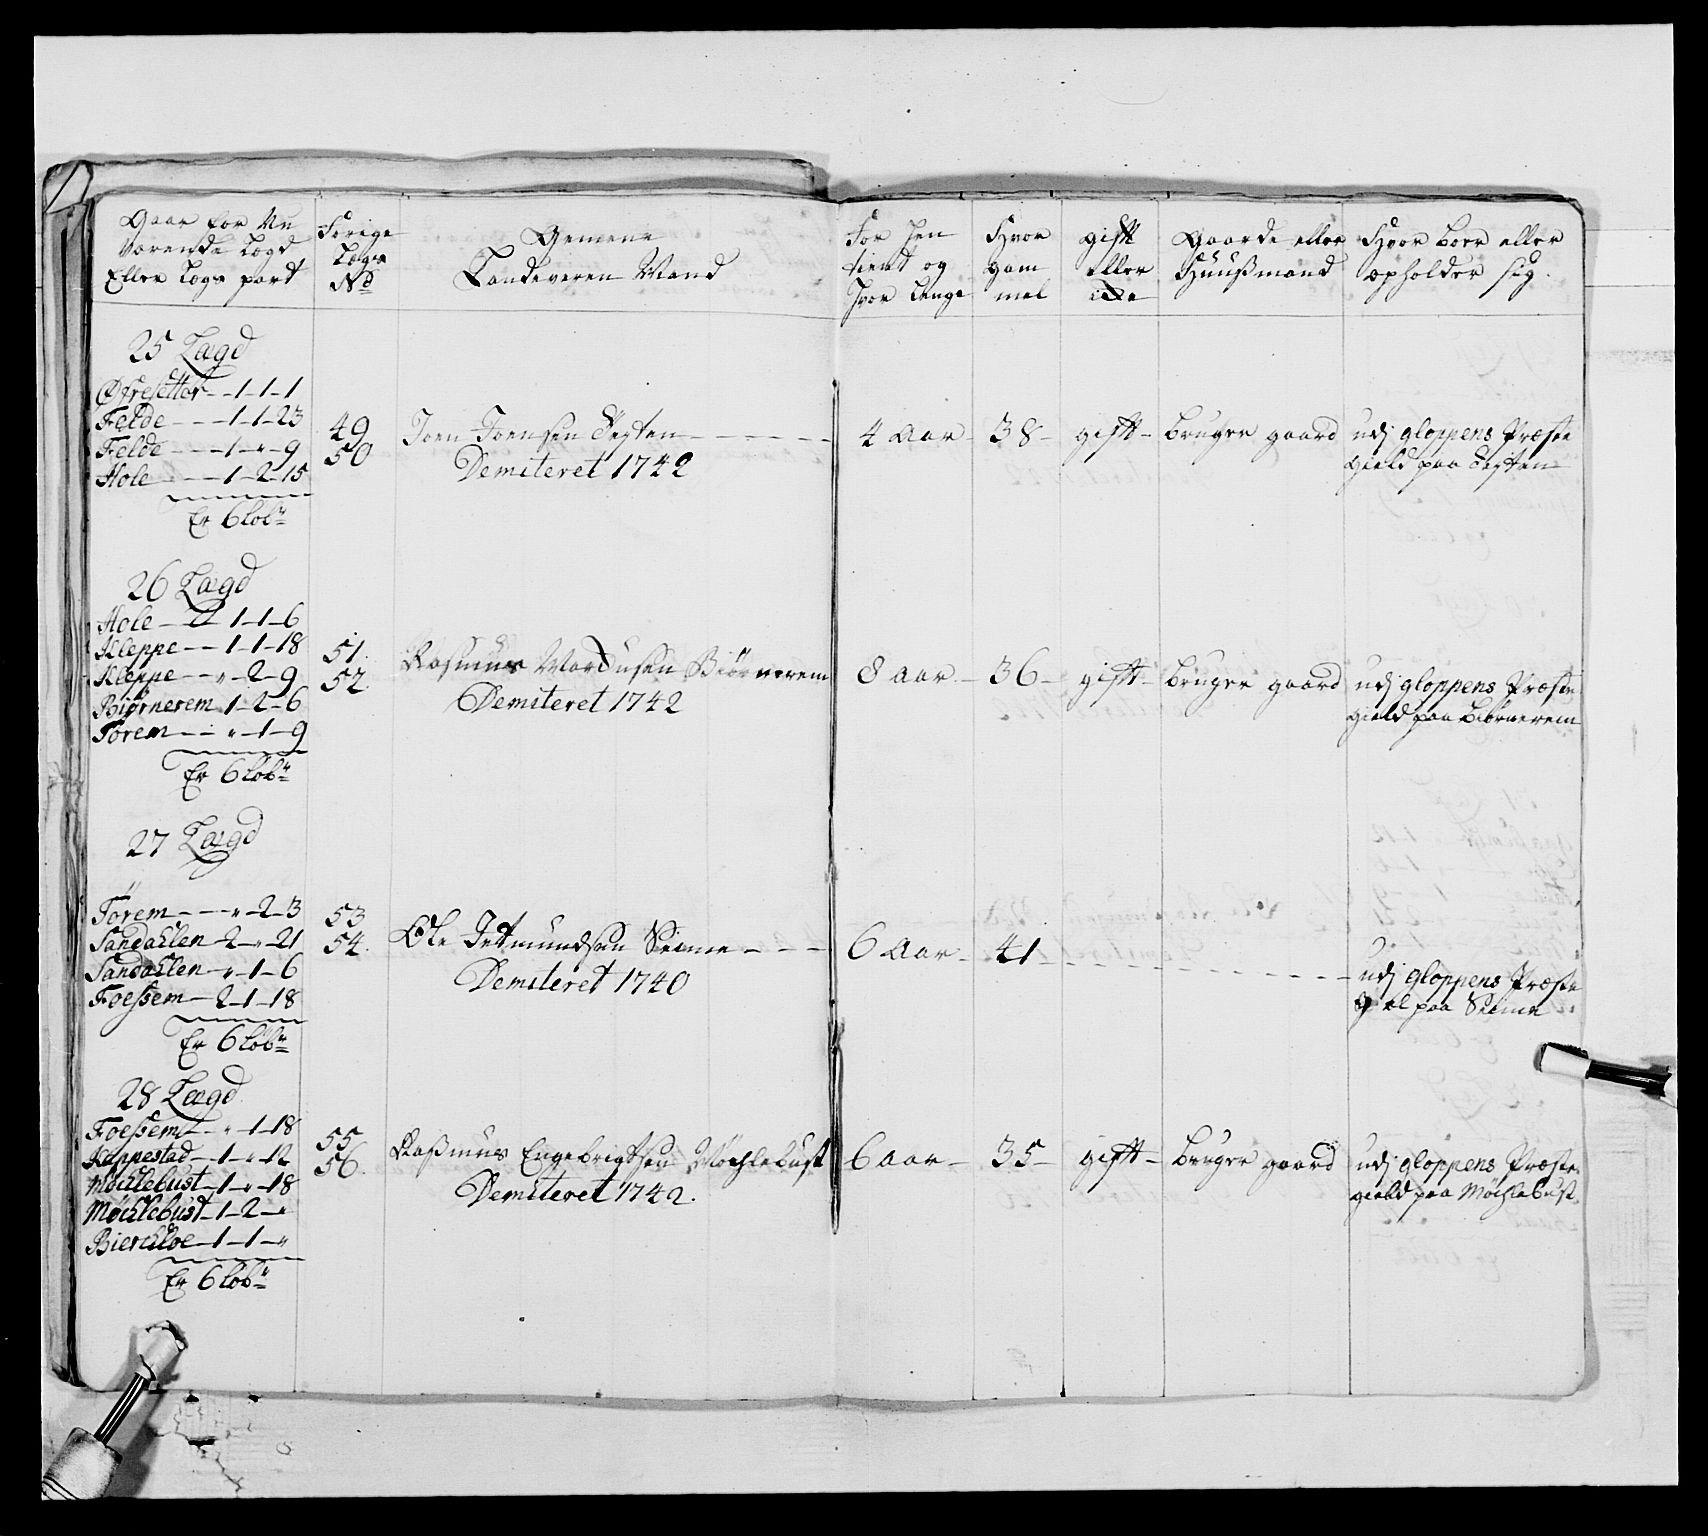 Gaar for Nu
værende Lægd
Eller Lægs part
Forige
Lægs
No
Gemene
Landeværn Mand
For Hen
tient og
Hvor Lenge
Hvor
gam
mel
gift
eller
icke
Gaarde eller
Huusmand
Hvor boer eller
opholder sig
25 Lægd
Øfresetter 1-1-1
Felde 1-1-23
Felde 1-"-9
Hole 1-2-15
Er 6 löb:
49
50
Joen Joensen
Demiteret 1742
4 Aar
38
gift
bruger gaard
udj gloppens Præste
gield paa
26 Lægd
Hole 1-1-6
Kleppe 1-1-18
Kleppe "-2-9
Biørnerem 1-2-6
Törem "-1-9
Er 6 löb:
51.
52.
Rasmus Mardusen Biörnerem
Demiteret 1742
8 Aar
36
gift
bruger gaard
udj gloppens Præste
gield paa Biörnerem
27 Lægd
Törem "-2-3
Sandahlen 2-"-21
Sandahlen "-1-6
Foessem 2-1-18
Er 6 löb:
53
54.
Ole Jetmundsen Seime
Demiteret 1740
6 Aar
41
udj gloppens Præste
gield paa Seime
28 Lægd
Foessem "-1-18
Reppestad 1-"-12
Möchlebust 1-"-18
Möchlebust 1-2-"
Bierchloe 1-1-"
Er 6 löb:
55
56.
Rasmus Engebrigtsen Möchlebust
Demiteret 1742.
6 aar
35
gift
bruger gaard
udj gloppens Præste
gield paa Möchlebust